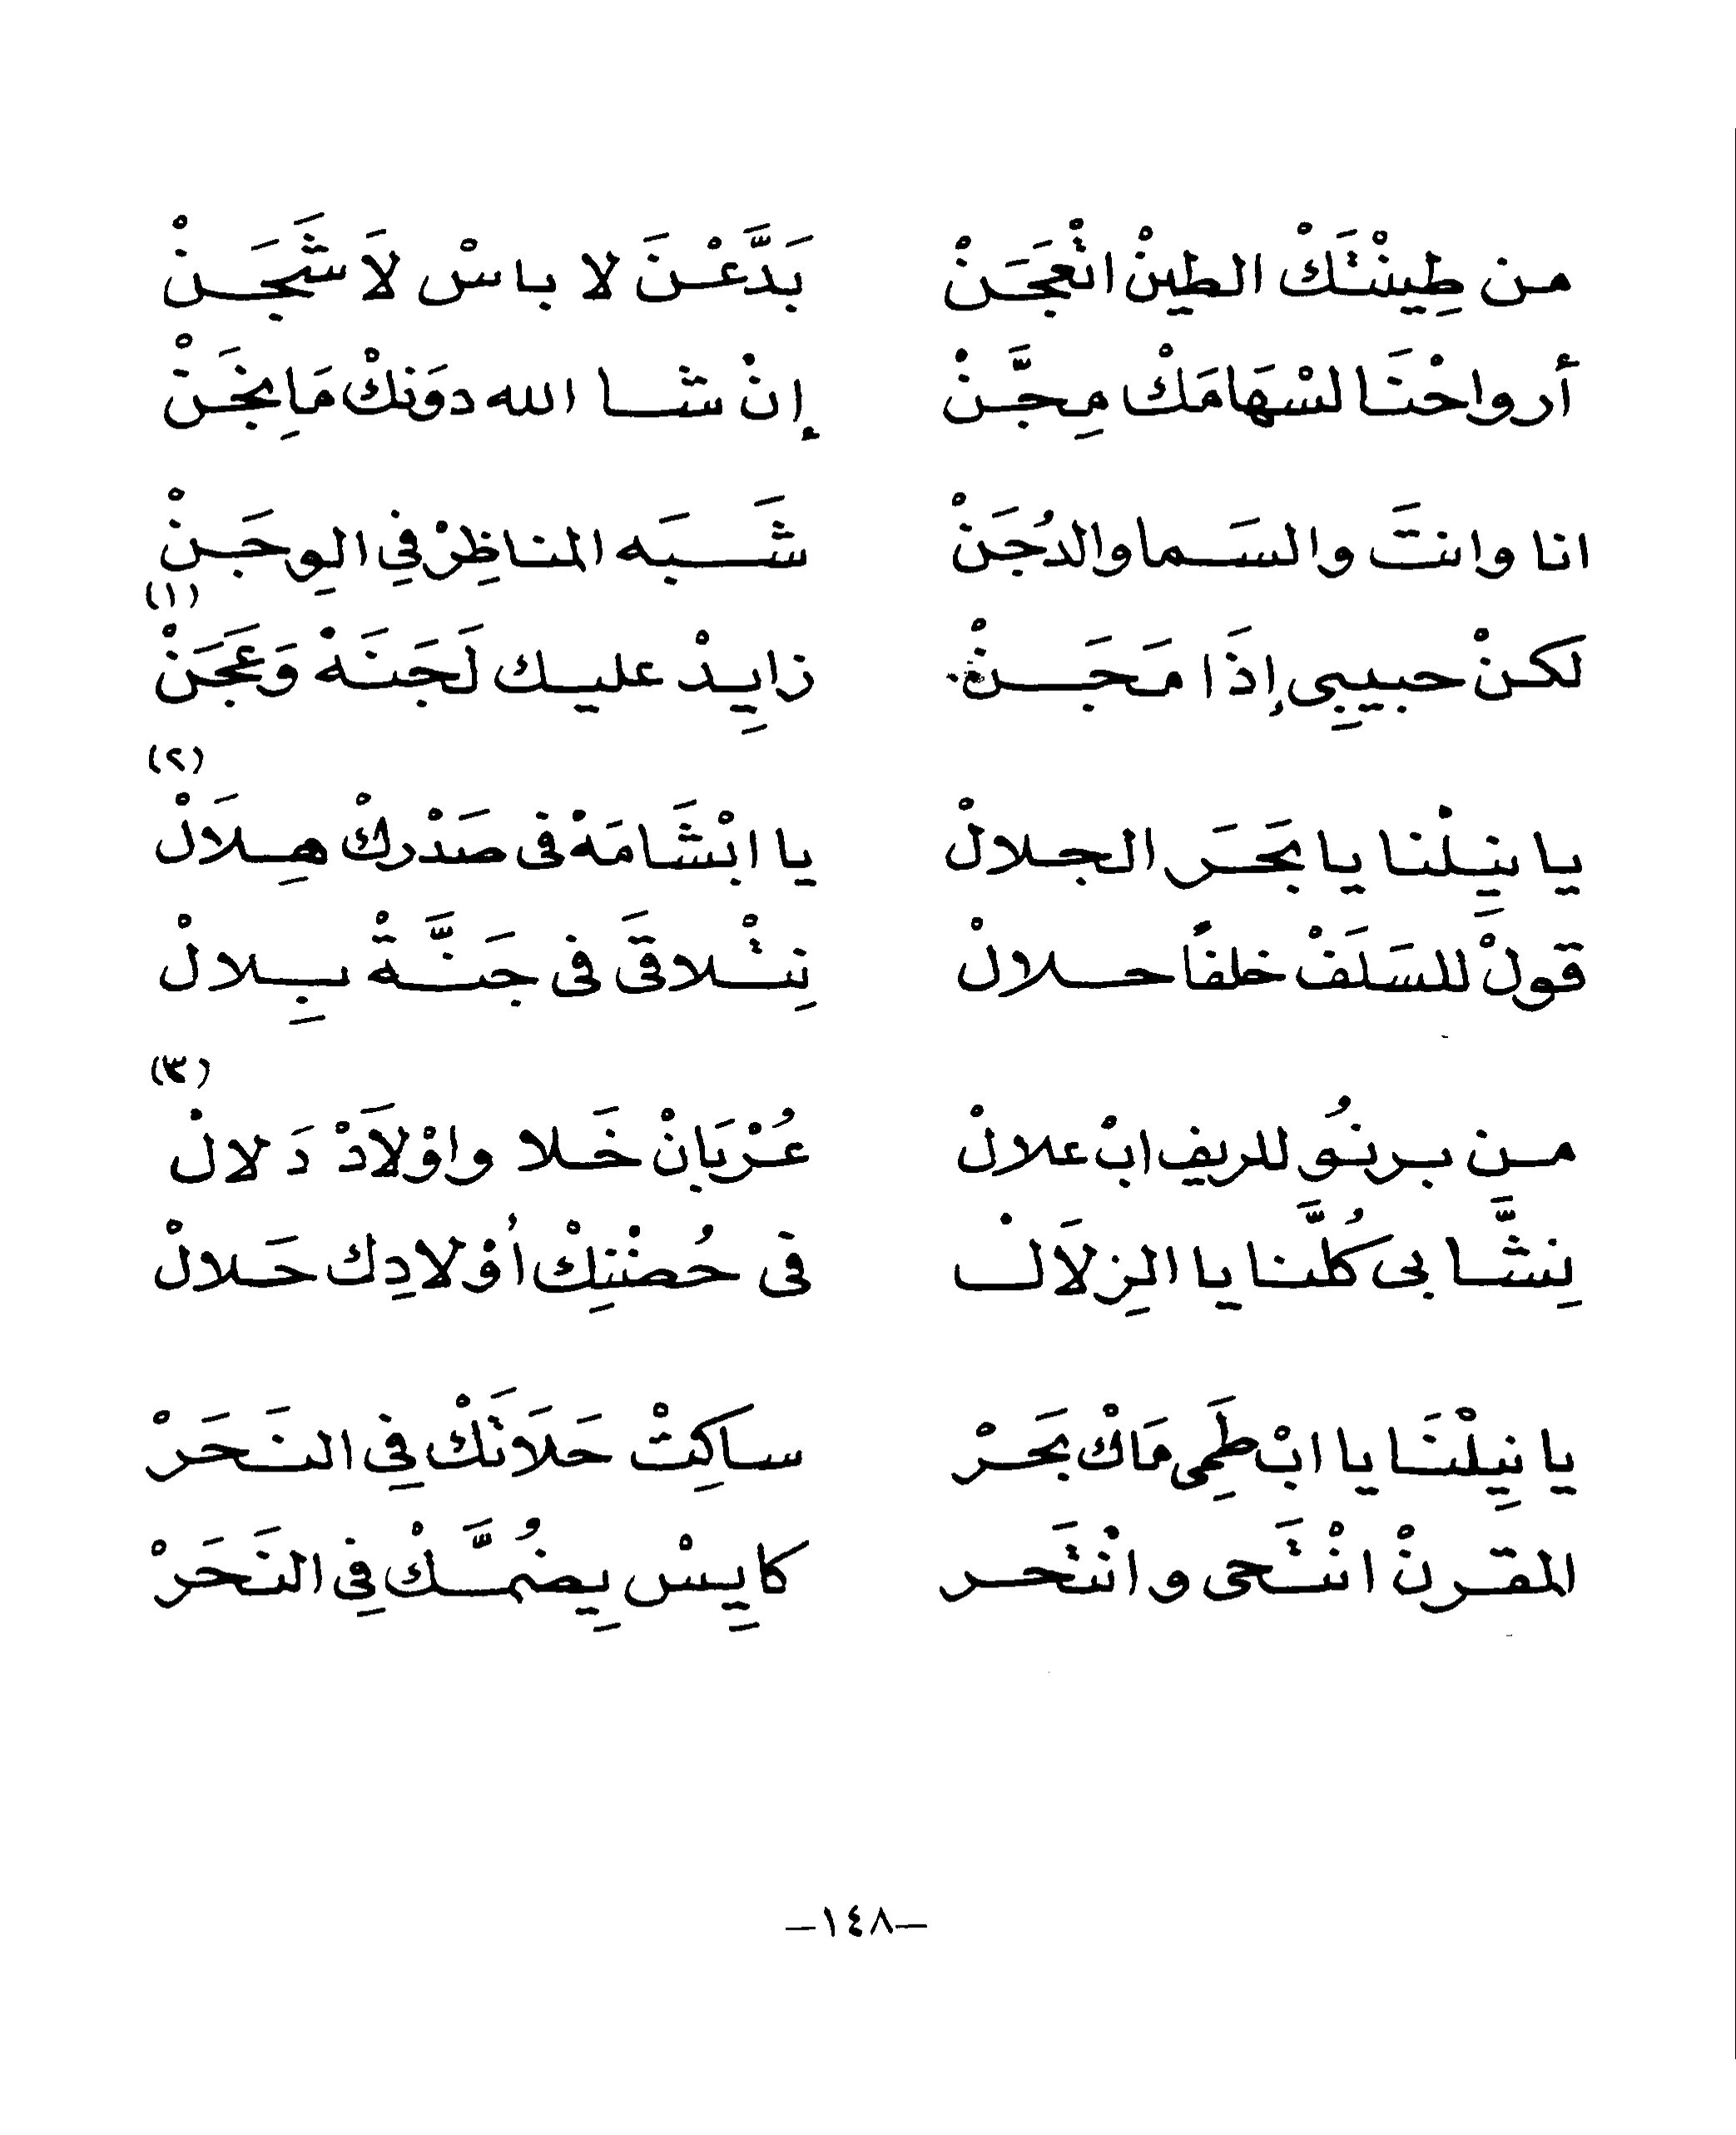 من طِينْتَكْ الطينْ انْعَجَنْ بَدَّعْنَ لا باسْ لاَ شَجَنْ
أرواحْنَا لسْهَامَكْ مِجَّنْ إنْ شا الله دوَنكْ مَاِيخَنْ
انا وانتَ والسَما والدُجَنْ شَبَه المناظِرْ فِي الوِحَنْ
(١)
لكنْ حبيبِى إذَا مَحَنْ زايِدْ عليك لَجَنَهْ وَعَجَنْ
(٢)
يا نِيلْنا يا بَحَرَ الجلالْ يا ابْشَامَهْ فى صَدْركْ هِلاَلْ
قولْ للسَلَفْ خلفاً حلالْ نِتْلاقَى فى جَنَّةْ بِلالْ
(٣)
من برنُو للريف ابْ علالْ عُرْبَانْ خَلا واوْلاَدْ دَلالْ
نِشَّابى كُلَّنا يا الزِلاَلْ فى حُضْنِكْ أوْلادِك حَلالْ
يا نِيلْنَا يا ابْ طَمِى مَاكْ بَحَرْ ساكِتْ حَلاَتَكْ فِى النَحَرْ
المقرنْ انْتَحى وانْتَحر كايِسْ يِضُمَّكْ فِى النَحَرْ
–١٤٨–